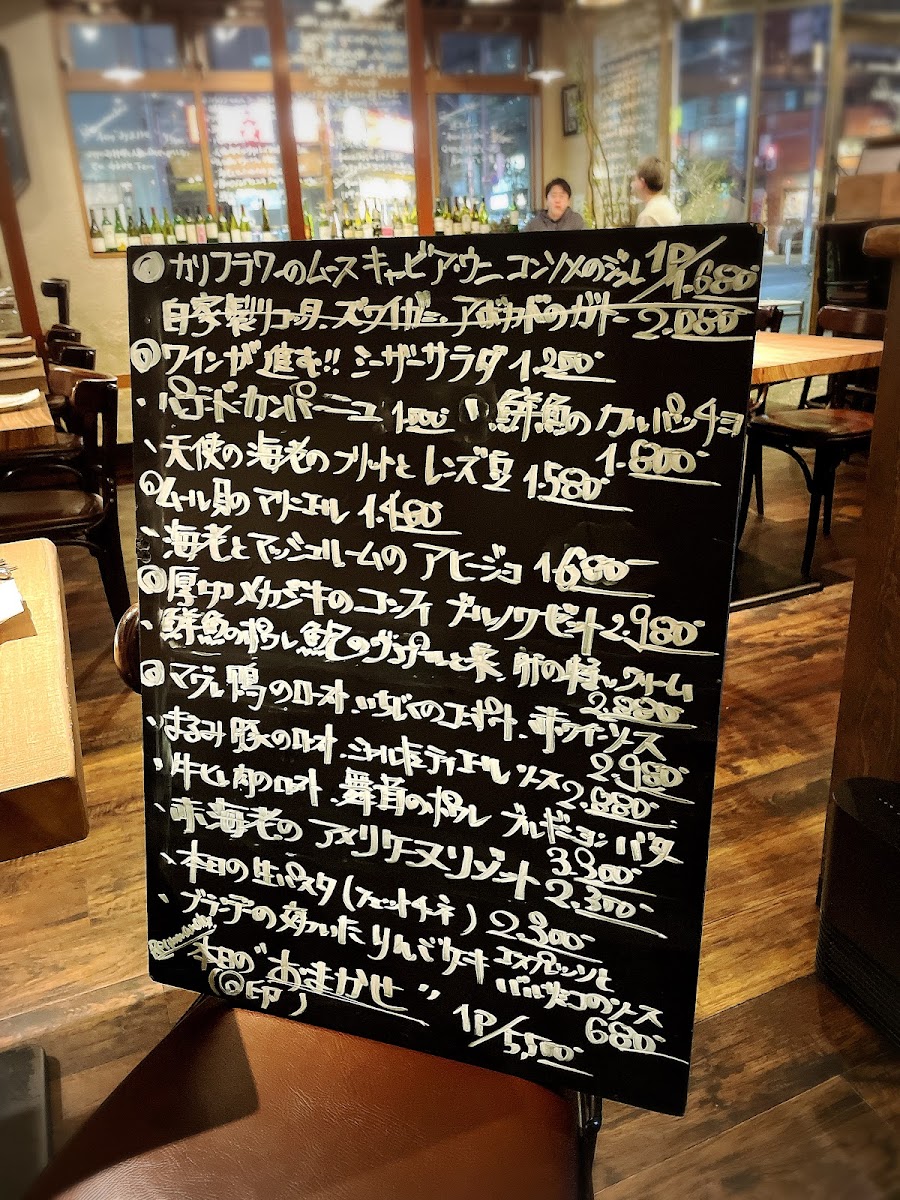 ◎カリフラワーのムース キャビア・ウニ コンソメのジュレ 1P/1.680-
自家製リコッタ、ズワイガニ、アボカドのガトー 2.080-
◎ワインが進む!! シーザーサラダ 1.200-
、パテ・ド・カンパーニュ 1500- 、鮮魚のカルパッチョ
1.600-
、天使の海老のフリットとレンズ豆 1.580-
◎ムール貝のマリニエール 1.480-
、海老とマッシュルームのアヒージョ 1.680-
◎厚切メカジキのコンフィ ブールノワゼット 2.980-
、鮮魚のポワレ
肝の軽いクリーム
2.880-
◎マグレ鴨のロースト、いちじくのコンポート、赤ワインソース
2.980-
、まるみ豚のロースト、シャルキュティエールソース
2.880-
、牛ヒレ肉のロースト、舞茸のポワレ ブルギニョンバター
3.300-
、赤海老のアメリケーヌリゾット
2.300-
、本日の生パスタ(フェットチーネ) 2.300-
、ブランデーの効いたりんごケーキ エスプレッソと
バルサミコのソース
680-
本日の"おまかせ"
(◎印) 1P/5,500-